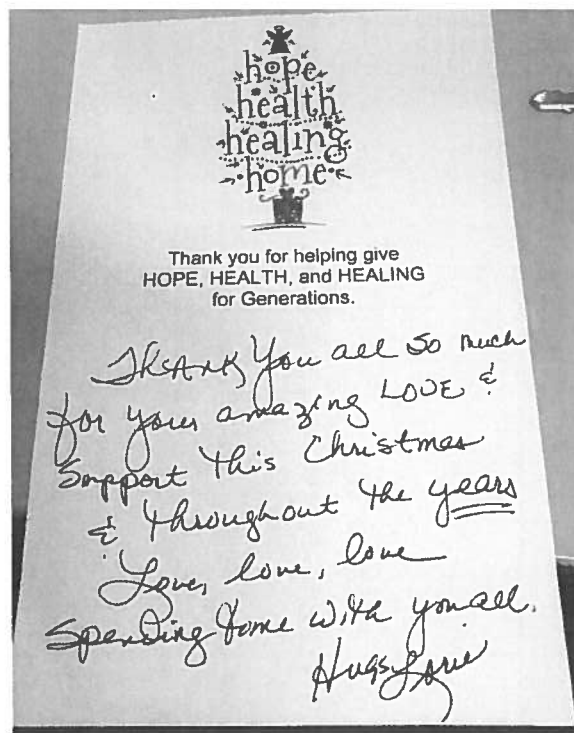 hope
health
healing
home
Thank you for helping give
HOPE, HEALTH, and HEALING
for Generations.
Thank You all so much
for your amazing LOVE &
Support this Christmas
& throughout the years
Love, love, love
Spending time with you all.
Hugs Lorie